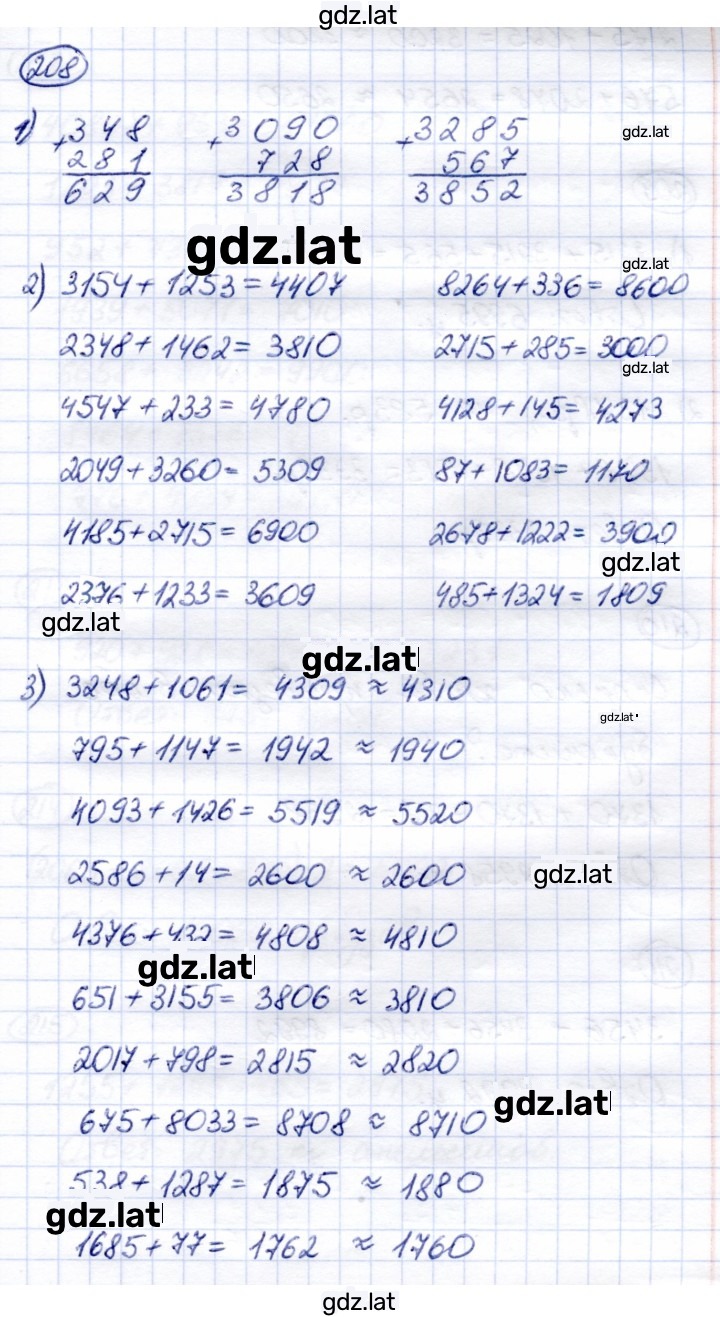 gdz.lat
208
1) +348 +3090 +3285 gdz.lat
281 728 567
629 3818 3852
gdz.lat
gdz.lat
2) 3154 + 1253 = 4407 8264 + 336 = 8600
2348 + 1462 = 3810 2715 + 285 = 3000
gdz.lat
4547 + 233 = 4780 4128 + 145 = 4273
2049 + 3260 = 5309 87 + 1083 = 1170
4185 + 2715 = 6900 2678 + 1222 = 3900
gdz.lat
2376 + 1233 = 3609 485 + 1324 = 1809
gdz.lat
gdz.lat
3) 3248 + 1061 = 4309 ≈ 4310
gdz.lat
795 + 1147 = 1942 ≈ 1940
4093 + 1426 = 5519 ≈ 5520
2586 + 14 = 2600 ≈ 2600 gdz.lat
4376 + 432 = 4808 ≈ 4810
gdz.lat
651 + 3155 = 3806 ≈ 3810
2017 + 798 = 2815 ≈ 2820
675 + 8033 = 8708 ≈ 8710 gdz.lat
538 + 1287 = 1875 ≈ 1880
gdz.lat
1685 + 77 = 1762 ≈ 1760
gdz.lat